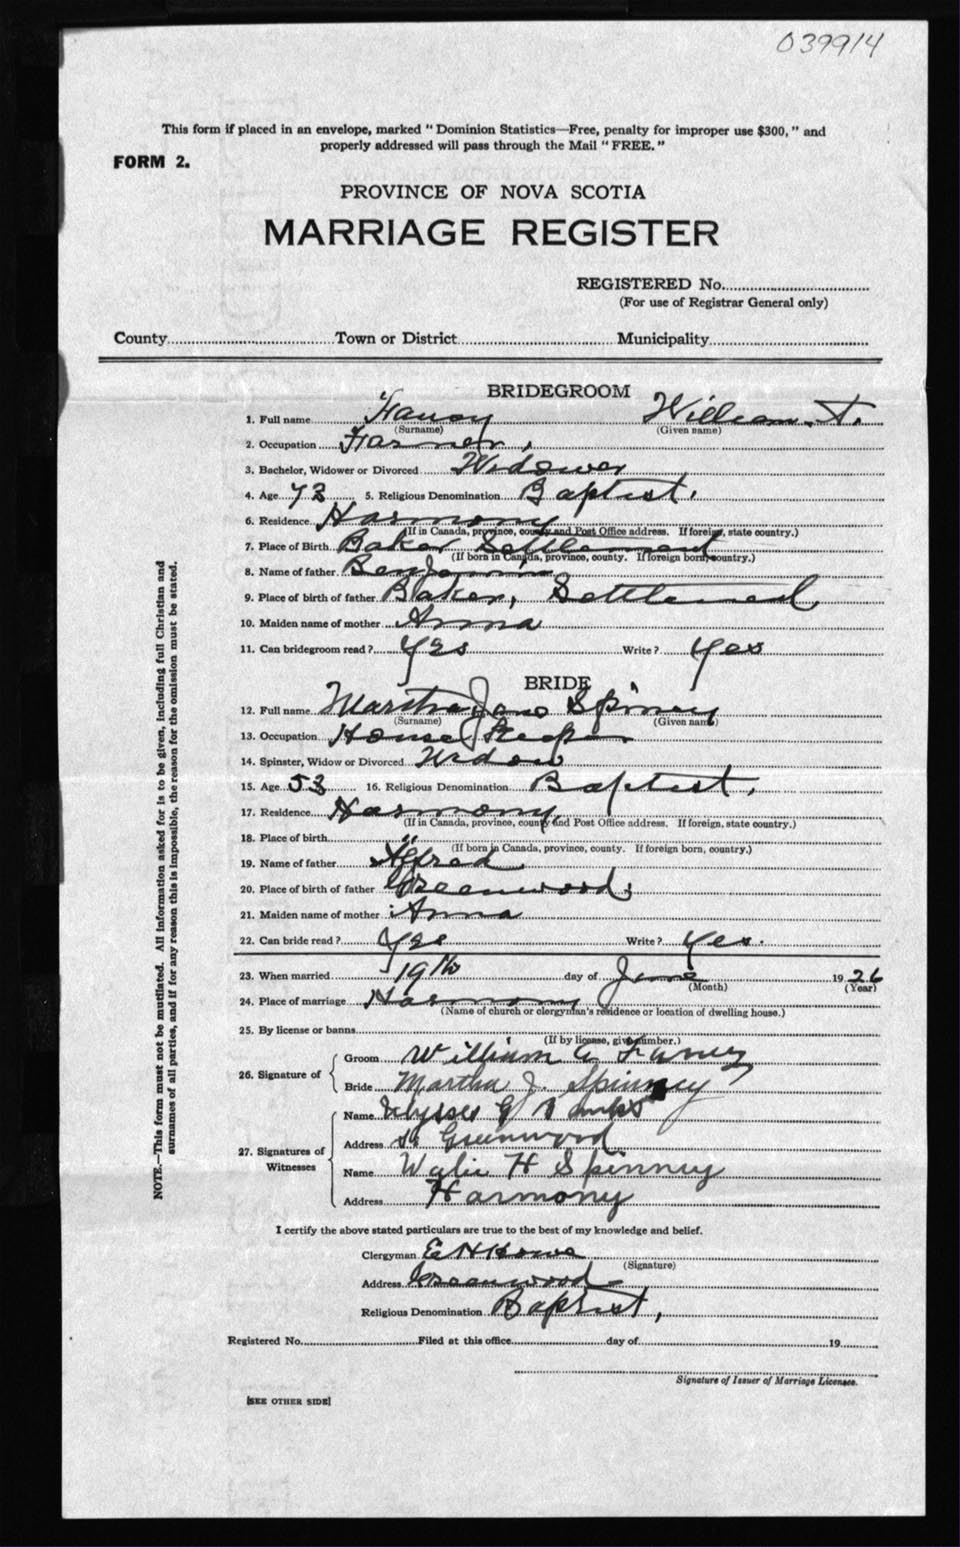 039914
This form if placed in an envelope, marked "Dominion Statistics—Free, penalty for improper use $300," and
properly addressed will pass through the Mail "FREE."
FORM 2.
PROVINCE OF NOVA SCOTIA
MARRIAGE REGISTER
REGISTERED No.
(For use of Registrar General only)
County Town or District Municipality
BRIDEGROOM
1. Full name William
(Surname) (Given name)
2. Occupation Farmer,
3. Bachelor, Widower or Divorced Widower
4. Age 73 5. Religious Denomination Baptist.
6. Residence Harmony
(If in Canada, province, county and Post Office address. If foreign, state country.)
7. Place of Birth Baker Settlement
(If born in Canada, province, county. If foreign born, country.)
8. Name of father Benjamin
9. Place of birth of father Baker, Settlement
10. Maiden name of mother Anna
11. Can bridegroom read? Yes Write? Yes
BRIDE
12. Full name Martha Jane Spinney
(Surname) (Given name)
13. Occupation House Keeper
14. Spinster, Widow or Divorced Widow
15. Age 53 16. Religious Denomination Baptist,
17. Residence Harmony,
(If in Canada, province, county and Post Office address. If foreign, state country.)
18. Place of birth "
(If born in Canada, province, county. If foreign born, country.)
19. Name of father Alfred
20. Place of birth of father Greenwood,
21. Maiden name of mother Anna
22. Can bride read? Yes Write? Yes.
23. When married 19th day of June 1926
(Month) (Year)
24. Place of marriage Harmony
(Name of church or clergyman's residence or location of dwelling house.)
25. By license or banns
(If by license, give number.)
26. Signature of
Groom William
Bride Martha J. Spinney
27. Signatures of Witnesses
Name Ulysses G
Address Greenwood
Name Wylie H Spinney
Address Harmony
I certify the above stated particulars are true to the best of my knowledge and belief.
Clergyman E H Howe
(Signature)
Address Greenwood
Religious Denomination Baptist,
Registered No. Filed at this office day of 19
Signature of Issuer of Marriage Licenses.
[SEE OTHER SIDE]
NOTE.—This form must not be mutilated. All information asked for is to be given, including full Christian and
surnames of all parties, and if for any reason this is impossible, the reason for the omission must be stated.